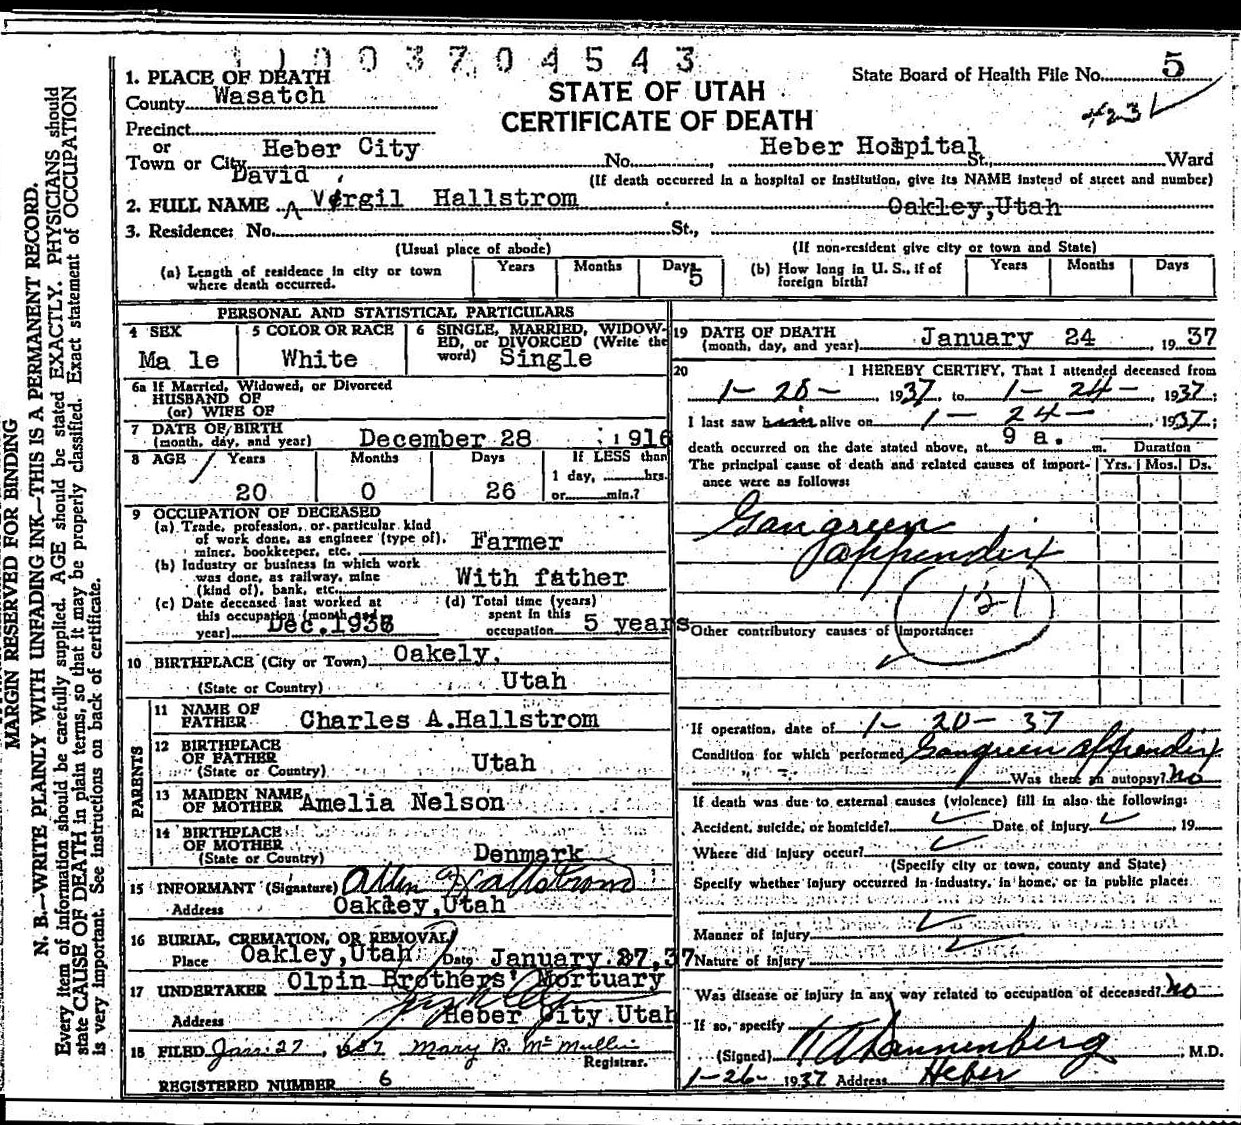 1 1 0 0 3 7 0 4 5 4 3
State Board of Health File No. 5
STATE OF UTAH
CERTIFICATE OF DEATH
1. PLACE OF DEATH
County Wasatch
Precinct
or
Town or City Heber City No. Heber Hospital St., Ward
(If death occurred in a hospital or institution, give its NAME instead of street and number)
David
2. FULL NAME Virgil Hallstrom
Oakley,Utah
3. Residence: No. St.,
(Usual place of abode) (If non-resident give city or town and State)
(a) Length of residence in city or town where death occurred. Years Months Days 5
(b) How long in U. S., if of foreign birth? Years Months Days
PERSONAL AND STATISTICAL PARTICULARS
4 SEX Ma le
5 COLOR OR RACE White
6 SINGLE, MARRIED, WIDOWED, or DIVORCED (Write the word) Single
6a If Married, Widowed, or Divorced
HUSBAND OF
(or) WIFE OF
7 DATE OF BIRTH
(month, day, and year) December 28 1916
8 AGE Years Months Days If LESS than
1 day, hrs.
20 0 26 or min.?
9 OCCUPATION OF DECEASED
(a) Trade, profession, or particular kind
of work done, as engineer (type of),
miner, bookkeeper, etc. Farmer
(b) Industry or business in which work
was done, as railway, mine
(kind of), bank, etc. With father
(c) Date deceased last worked at
this occupation (month and
year) Dec.1936
(d) Total time (years)
spent in this
occupation 5 years
10 BIRTHPLACE (City or Town) Oakely,
(State or Country) Utah
PARENTS
11 NAME OF
FATHER Charles A.Hallstrom
12 BIRTHPLACE
OF FATHER
(State or Country) Utah
13 MAIDEN NAME
OF MOTHER Amelia Nelson
14 BIRTHPLACE
OF MOTHER
(State or Country) Denmark
15 INFORMANT (Signature) Allen Hallstrom
Address Oakley,Utah
16 BURIAL, CREMATION, OR REMOVAL
Place Oakley,Utah Date January 27,37
17 UNDERTAKER Olpin Brothers' Mortuary
Address Heber City Utah
18 FILED Jan. 27, 1937 Mary B. McMullin
Registrar.
REGISTERED NUMBER 6
19 DATE OF DEATH
(month, day, and year) January 24, 1937
20 I HEREBY CERTIFY, That I attended deceased from
1-20-, 1937, to 1-24-, 1937;
I last saw him alive on 1-24-, 1937;
death occurred on the date stated above, at 9 a. m. Duration
The principal cause of death and related causes of importance were as follows: Yrs. Mos. Ds.
Gangreen
appendix
121
Other contributory causes of importance:
If operation, date of 1-20-37
Condition for which performed Gangreen appendix
Was there an autopsy? no
If death was due to external causes (violence) fill in also the following:
Accident, suicide, or homicide? Date of injury , 19
Where did injury occur?
(Specify city or town, county and State)
Specify whether injury occurred in industry, in home, or in public place:
Manner of injury
Nature of injury
Was disease or injury in any way related to occupation of deceased? no
If so, specify
(Signed) Dannenberg, M.D.
1-26-1937 Address Heber
MARGIN RESERVED FOR BINDING
N. B.—WRITE PLAINLY WITH UNFADING INK—THIS IS A PERMANENT RECORD.
Every item of information should be carefully supplied. AGE should be stated EXACTLY. PHYSICIANS should
state CAUSE OF DEATH in plain terms, so that it may be properly classified. Exact statement of OCCUPATION
is very important. See instructions on back of certificate.